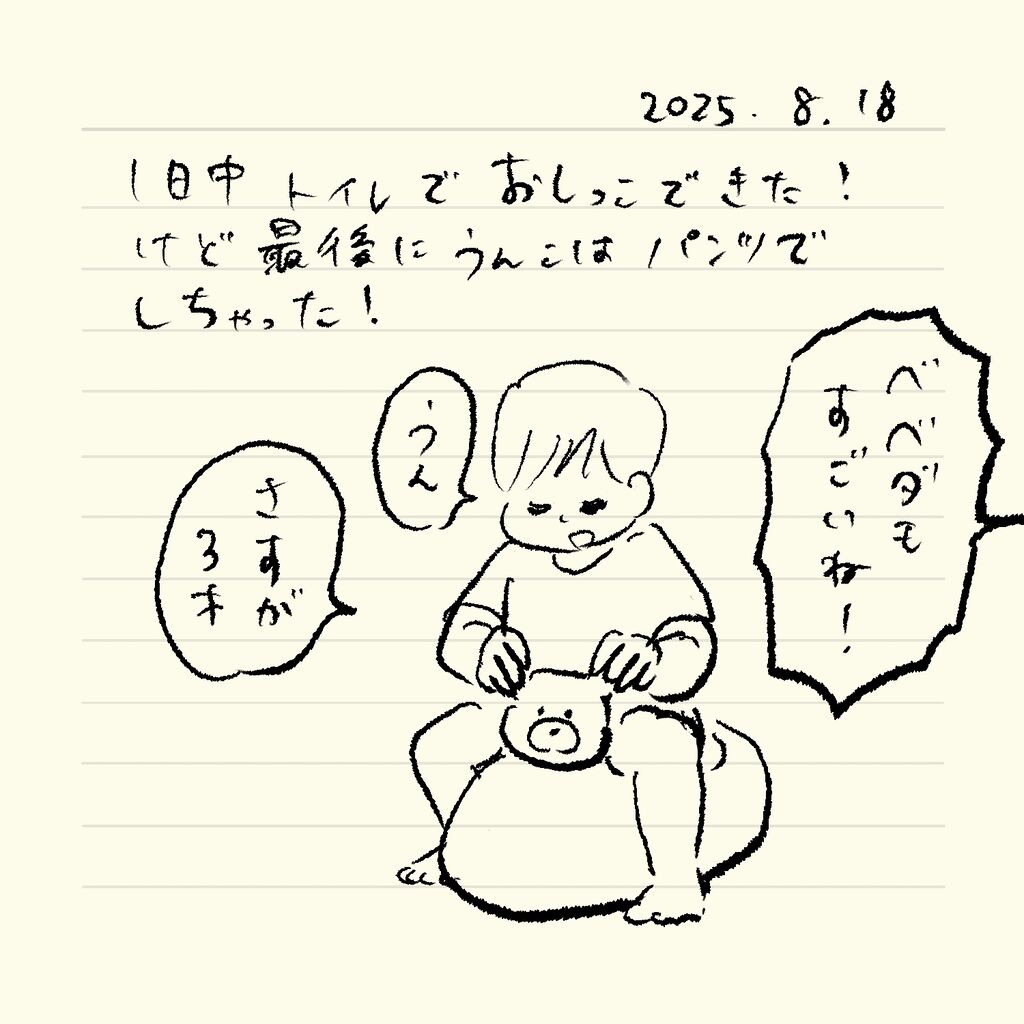 2025. 8. 18
1日中 トイレで おしっこできた!
けど 最後に うんこは パンツで
しちゃった!
べべダモ
すごいね!
うん
さすが
3才